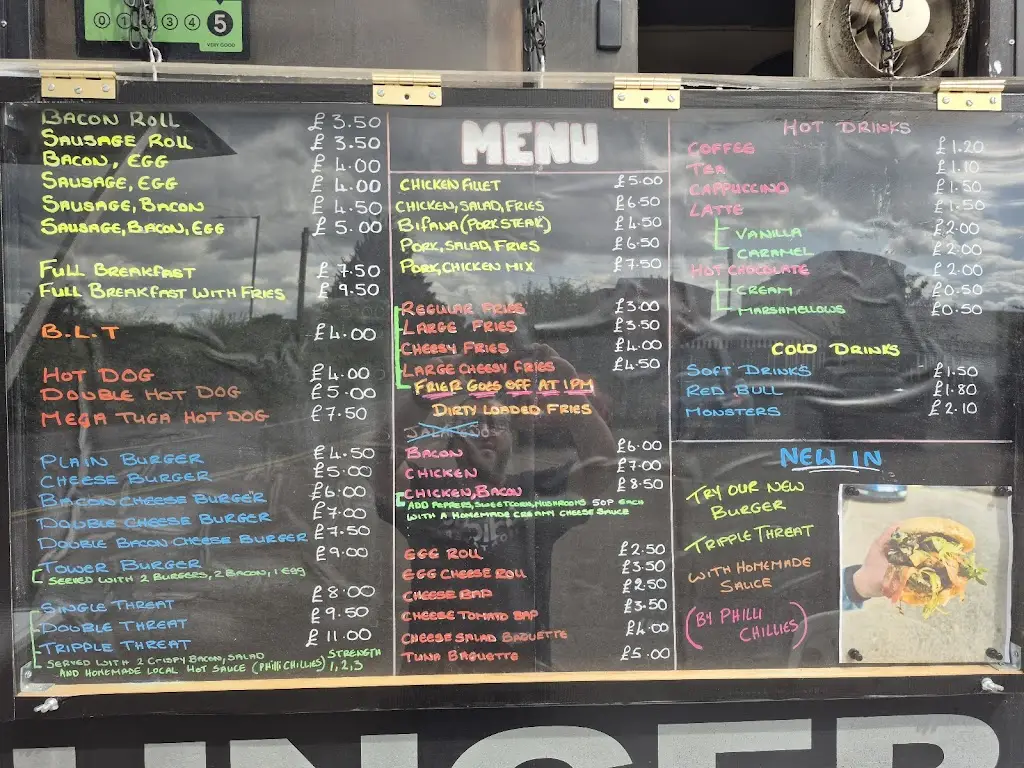 0 1 3 4 5
VERY GOOD
BACON ROLL £3.50
SAUSAGE ROLL £3.50
BACON, EGG £4.00
SAUSAGE, EGG £4.00
SAUSAGE, BACON £4.50
SAUSAGE, BACON, EGG £5.00
FULL BREAKFAST £7.50
FULL BREAKFAST WITH FRIES £9.50
B.L.T £4.00
HOT DOG £4.00
DOUBLE HOT DOG £5.00
MEGA TUGA HOT DOG £7.50
PLAIN BURGER £4.50
CHEESE BURGER £5.00
BACON CHEESE BURGER £6.00
DOUBLE CHEESE BURGER £7.00
DOUBLE BACON CHEESE BURGER £7.50
TOWER BURGER £9.00
SERVED WITH 2 BURGERS, 2 BACON, 1 EGG
SINGLE THREAT £8.00
DOUBLE THREAT £9.50
TRIPPLE THREAT £11.00
SERVED WITH 2 CRISPY BACON, SALAD STRENGTH
AND HOMEMADE LOCAL HOT SAUCE (PHILLI CHILLIES) 1, 2, 3
MENU
CHICKEN FILLET £5.00
CHICKEN, SALAD, FRIES £6.50
BIFANA (PORK STEAK) £4.50
PORK, SALAD, FRIES £6.50
PORK, CHICKEN MIX £7.50
REGULAR FRIES £3.00
LARGE FRIES £3.50
CHEESY FRIES £4.00
LARGE CHEESY FRIES £4.50
FRIER GOES OFF AT 1PM
DIRTY LOADED FRIES
BACON £6.00
CHICKEN £7.00
CHICKEN, BACON £8.50
ADD PEPPERS, SWEETCORN, MUSHROOMS 50P EACH
WITH A HOMEMADE CREAMY CHEESE SAUCE
EGG ROLL £2.50
EGG CHEESE ROLL £3.50
CHEESE BAP £2.50
CHEESE TOMATO BAP £3.50
CHEESE SALAD BAGUETTE £4.00
TUNA BAGUETTE £5.00
HOT DRINKS
COFFEE £1.20
TEA £1.10
CAPPUCCINO £1.50
LATTE £1.50
VANILLA £2.00
CARAMEL £2.00
HOT CHOCOLATE £2.00
CREAM £0.50
MARSHMELLOWS £0.50
COLD DRINKS
SOFT DRINKS £1.50
RED BULL £1.80
MONSTERS £2.10
NEW IN
TRY OUR NEW
BURGER
TRIPPLE THREAT
WITH HOMEMADE
SAUCE
(BY PHILLI
CHILLIES)